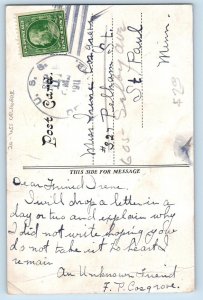 U. S. S.
1911
Post Card
Miss Irene Cosgrove
#327 Pelham St.
605 Selby ave
St. Paul
Minn.
$20
THIS SIDE FOR MESSAGE
Dear Friend Irene:
I will drop a letter in a
day or two and explain why
I did not write hoping you
do not take it to heart
remain
An Unknown Friend
F. P. Cosgrove.